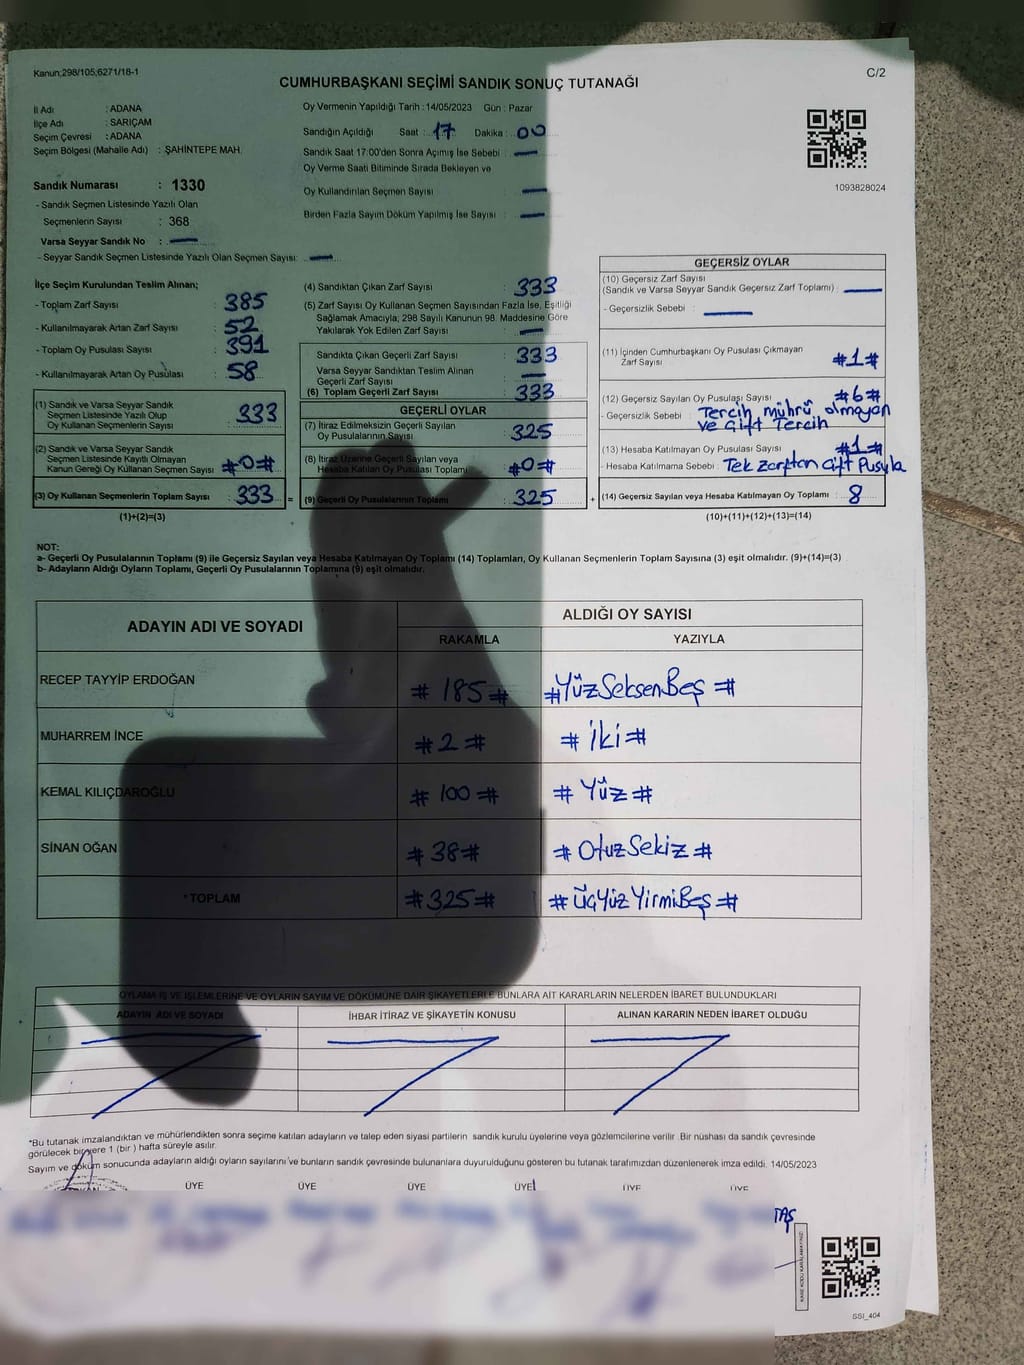 Kanun;298/105;6271/18-1
C/2
CUMHURBAŞKANI SEÇİMİ SANDIK SONUÇ TUTANAĞI
İl Adı : ADANA
İlçe Adı : SARIÇAM
Seçim Çevresi : ADANA
Seçim Bölgesi (Mahalle Adı) : ŞAHİNTEPE MAH.
Sandık Numarası : 1330
- Sandık Seçmen Listesinde Yazılı Olan
Seçmenlerin Sayısı : 368
Varsa Seyyar Sandık No :
- Seyyar Sandık Seçmen Listesinde Yazılı Olan Seçmen Sayısı:
Oy Vermenin Yapıldığı Tarih : 14/05/2023 Gün : Pazar
Sandığın Açıldığı Saat : 17 Dakika : 00
Sandık Saat 17:00'den Sonra Açımış İse Sebebi :
Oy Verme Saati Bitiminde Sırada Bekleyen ve
Oy Kullandırılan Seçmen Sayısı :
Birden Fazla Sayım Döküm Yapılmış İse Sayısı :
1093828024
İlçe Seçim Kurulundan Teslim Alınan;
- Toplam Zarf Sayısı : 385
- Kullanılmayarak Artan Zarf Sayısı : 52
- Toplam Oy Pusulası Sayısı : 391
- Kullanılmayarak Artan Oy Pusulası : 58
(1) Sandık ve Varsa Seyyar Sandık
Seçmen Listesinde Yazılı Olup
Oy Kullanan Seçmenlerin Sayısı : 333
(2) Sandık ve Varsa Seyyar Sandık
Seçmen Listesinde Kayıtlı Olmayan
Kanun Gereği Oy Kullanan Seçmen Sayısı : #0#
(3) Oy Kullanan Seçmenlerin Toplam Sayısı : 333 =
(1)+(2)=(3)
(4) Sandıktan Çıkan Zarf Sayısı : 333
(5) Zarf Sayısı Oy Kullanan Seçmen Sayısından Fazla İse, Eşitliği
Sağlamak Amacıyla; 298 Sayılı Kanunun 98. Maddesine Göre
Yakılarak Yok Edilen Zarf Sayısı :
Sandıkta Çıkan Geçerli Zarf Sayısı : 333
Varsa Seyyar Sandıktan Teslim Alınan
Geçerli Zarf Sayısı :
(6) Toplam Geçerli Zarf Sayısı : 333
GEÇERLİ OYLAR
(7) İtiraz Edilmeksizin Geçerli Sayılan
Oy Pusulalarının Sayısı : 325
(8) İtiraz Üzerine Geçerli Sayılan veya
Hesaba Katılan Oy Pusulası Toplamı : #0#
(9) Geçerli Oy Pusulalarının Toplamı : 325 +
GEÇERSİZ OYLAR
(10) Geçersiz Zarf Sayısı
(Sandık ve Varsa Seyyar Sandık Geçersiz Zarf Toplamı) :
- Geçersizlik Sebebi :
(11) İçinden Cumhurbaşkanı Oy Pusulası Çıkmayan
Zarf Sayısı : #1#
(12) Geçersiz Sayılan Oy Pusulası Sayısı : #6#
- Geçersizlik Sebebi : Tercih mührü olmayan
ve Çift Tercih
(13) Hesaba Katılmayan Oy Pusulası Sayısı : #1#
- Hesaba Katılmama Sebebi : Tek zarftan Çift Pusula
(14) Geçersiz Sayılan veya Hesaba Katılmayan Oy Toplamı : 8
(10)+(11)+(12)+(13)=(14)
NOT:
a- Geçerli Oy Pusulalarının Toplamı (9) ile Geçersiz Sayılan veya Hesaba Katılmayan Oy Toplamı (14) Toplamları, Oy Kullanan Seçmenlerin Toplam Sayısına (3) eşit olmalıdır. (9)+(14)=(3)
b- Adayların Aldığı Oyların Toplamı, Geçerli Oy Pusulalarının Toplamına (9) eşit olmalıdır.
ADAYIN ADI VE SOYADI ALDIĞI OY SAYISI
RAKAMLA YAZIYLA
RECEP TAYYİP ERDOĞAN # 185 # #YüzSeksenBeş #
MUHARREM İNCE #2# # İki #
KEMAL KILIÇDAROĞLU # 100 # # Yüz #
SİNAN OĞAN # 38 # # OtuzSekiz #
*TOPLAM #325# # ÜçYüzYirmiBeş #
OYLAMA İŞ VE İŞLEMLERİNE VE OYLARIN SAYIM VE DÖKÜMÜNE DAİR ŞİKAYETLERLE BUNLARA AİT KARARLARIN NELERDEN İBARET BULUNDUKLARI
ADAYIN ADI VE SOYADI İHBAR İTİRAZ VE ŞİKAYETİN KONUSU ALINAN KARARIN NEDEN İBARET OLDUĞU
*Bu tutanak imzalandıktan ve mühürlendikten sonra seçime katılan adayların ve talep eden siyasi partilerin sandık kurulu üyelerine veya gözlemcilerine verilir. Bir nüshası da sandık çevresinde
görülecek bir yere 1 (bir) hafta süreyle asılır.
Sayım ve döküm sonucunda adayların aldığı oyların sayılarını ve bunların sandık çevresinde bulunanlara duyurulduğunu gösteren bu tutanak tarafımızdan düzenlenerek imza edildi. 14/05/2023
ÜYE ÜYE ÜYE ÜYE ÜYE ÜYE
TAŞ
SSİ_404